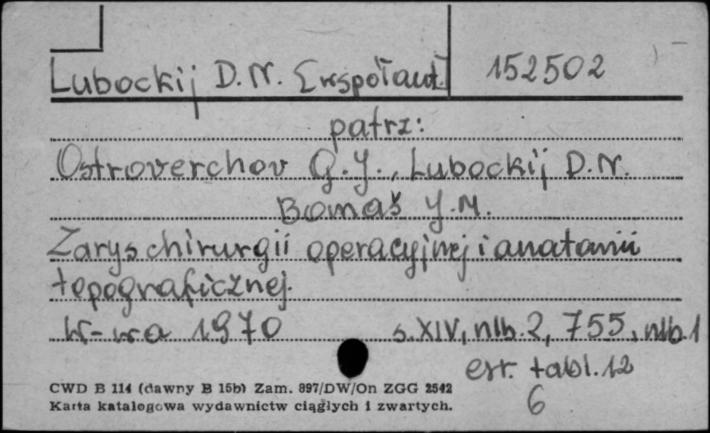 Lubockij D.N. [współaut.] 152502
patrz:
Ostroverchov G.J., Lubockij D.N.
Bomaš J.M.
Zarys chirurgii operacyjnej i anatomii
topograficznej.
W-wa 1970 s. XIV, nlb. 2, 755, nlb. 1
err. tabl. 12
6
CWD B 114 (dawny B 15b) Zam. 897/DW/On ZGG 2542
Karta katalogowa wydawnictw ciągłych i zwartych.